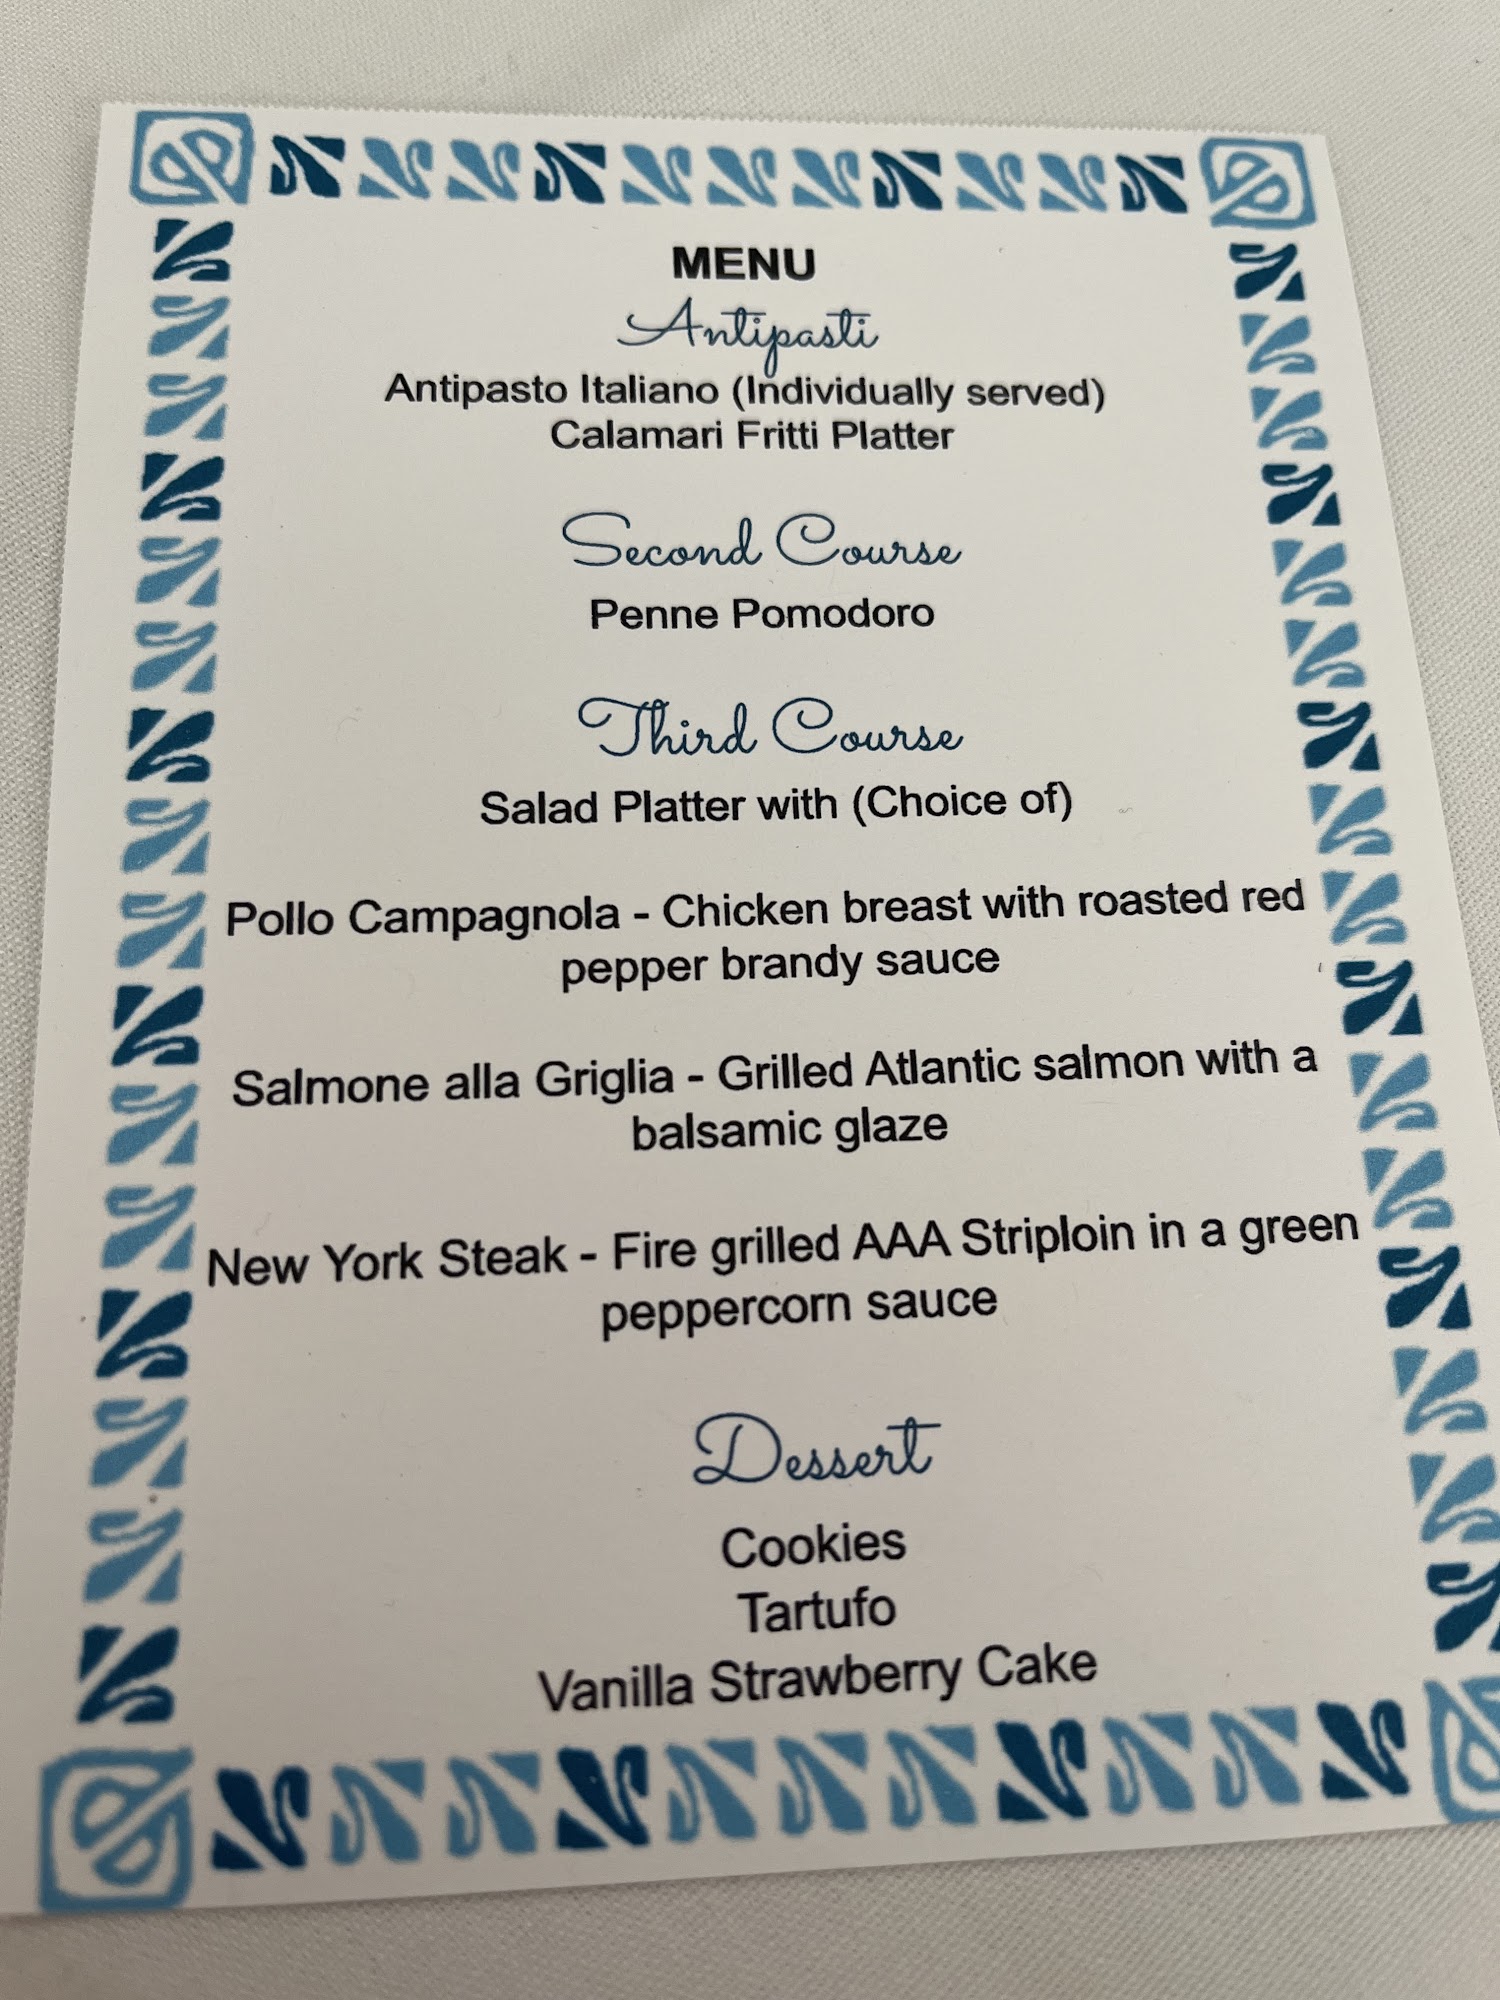 MENU
Antipasti
Antipasto Italiano (Individually served)
Calamari Fritti Platter
Second Course
Penne Pomodoro
Third Course
Salad Platter with (Choice of)
Pollo Campagnola - Chicken breast with roasted red
pepper brandy sauce
Salmone alla Griglia - Grilled Atlantic salmon with a
balsamic glaze
New York Steak - Fire grilled AAA Striploin in a green
peppercorn sauce
Dessert
Cookies
Tartufo
Vanilla Strawberry Cake